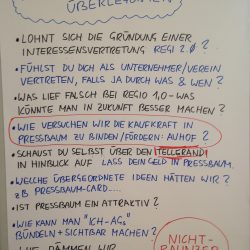 ÜBERLEGUNGEN
• LOHNT SICH DIE GRÜNDUNG EINER
INTERESSENSVERTRETUNG REGI 2.0?
• FÜHLST DU DICH ALS UNTERNEHMER/VEREIN
VERTRETEN, FALLS JA DURCH WAS & WEN?
• WAS LIEF FALSCH BEI REGIO 1.0 - WAS
KÖNNTE MAN IN ZUKUNFT BESSER MACHEN?
• WIE VERSUCHEN WIR DIE KAUFKRAFT IN
PRESSBAUM ZU BINDEN/FÖRDERN: AUHOF?
• SCHAUST DU SELBST ÜBER DEN TELLERAND
IN HINBLICK AUF LASS DEIN GELD IN PRESSBAUM.
• WELCHE ÜBERGEORDNETE IDEEN HÄTTEN WIR?
zB PRESSBAUM-CARD....
• IST PRESSBAUM EIN ATTRAKTIV?
• WIE KANN MAN "ICH-AGs"
BÜNDELN + SICHTBAR MACHEN?
WIR
NICHT-